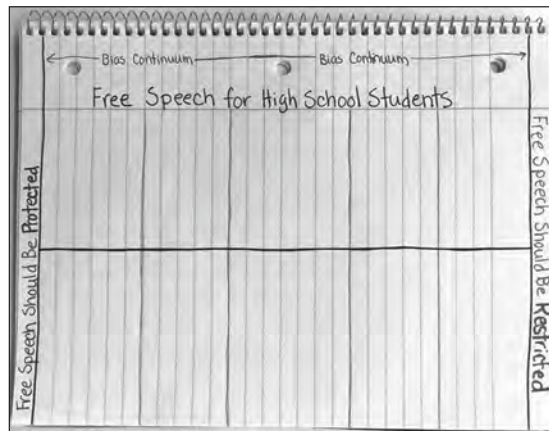 Bias Continuum Bias Continuum
Free Speech for High School Students
Free Speech Should Be Protected
Free Speech Should Be Restricted